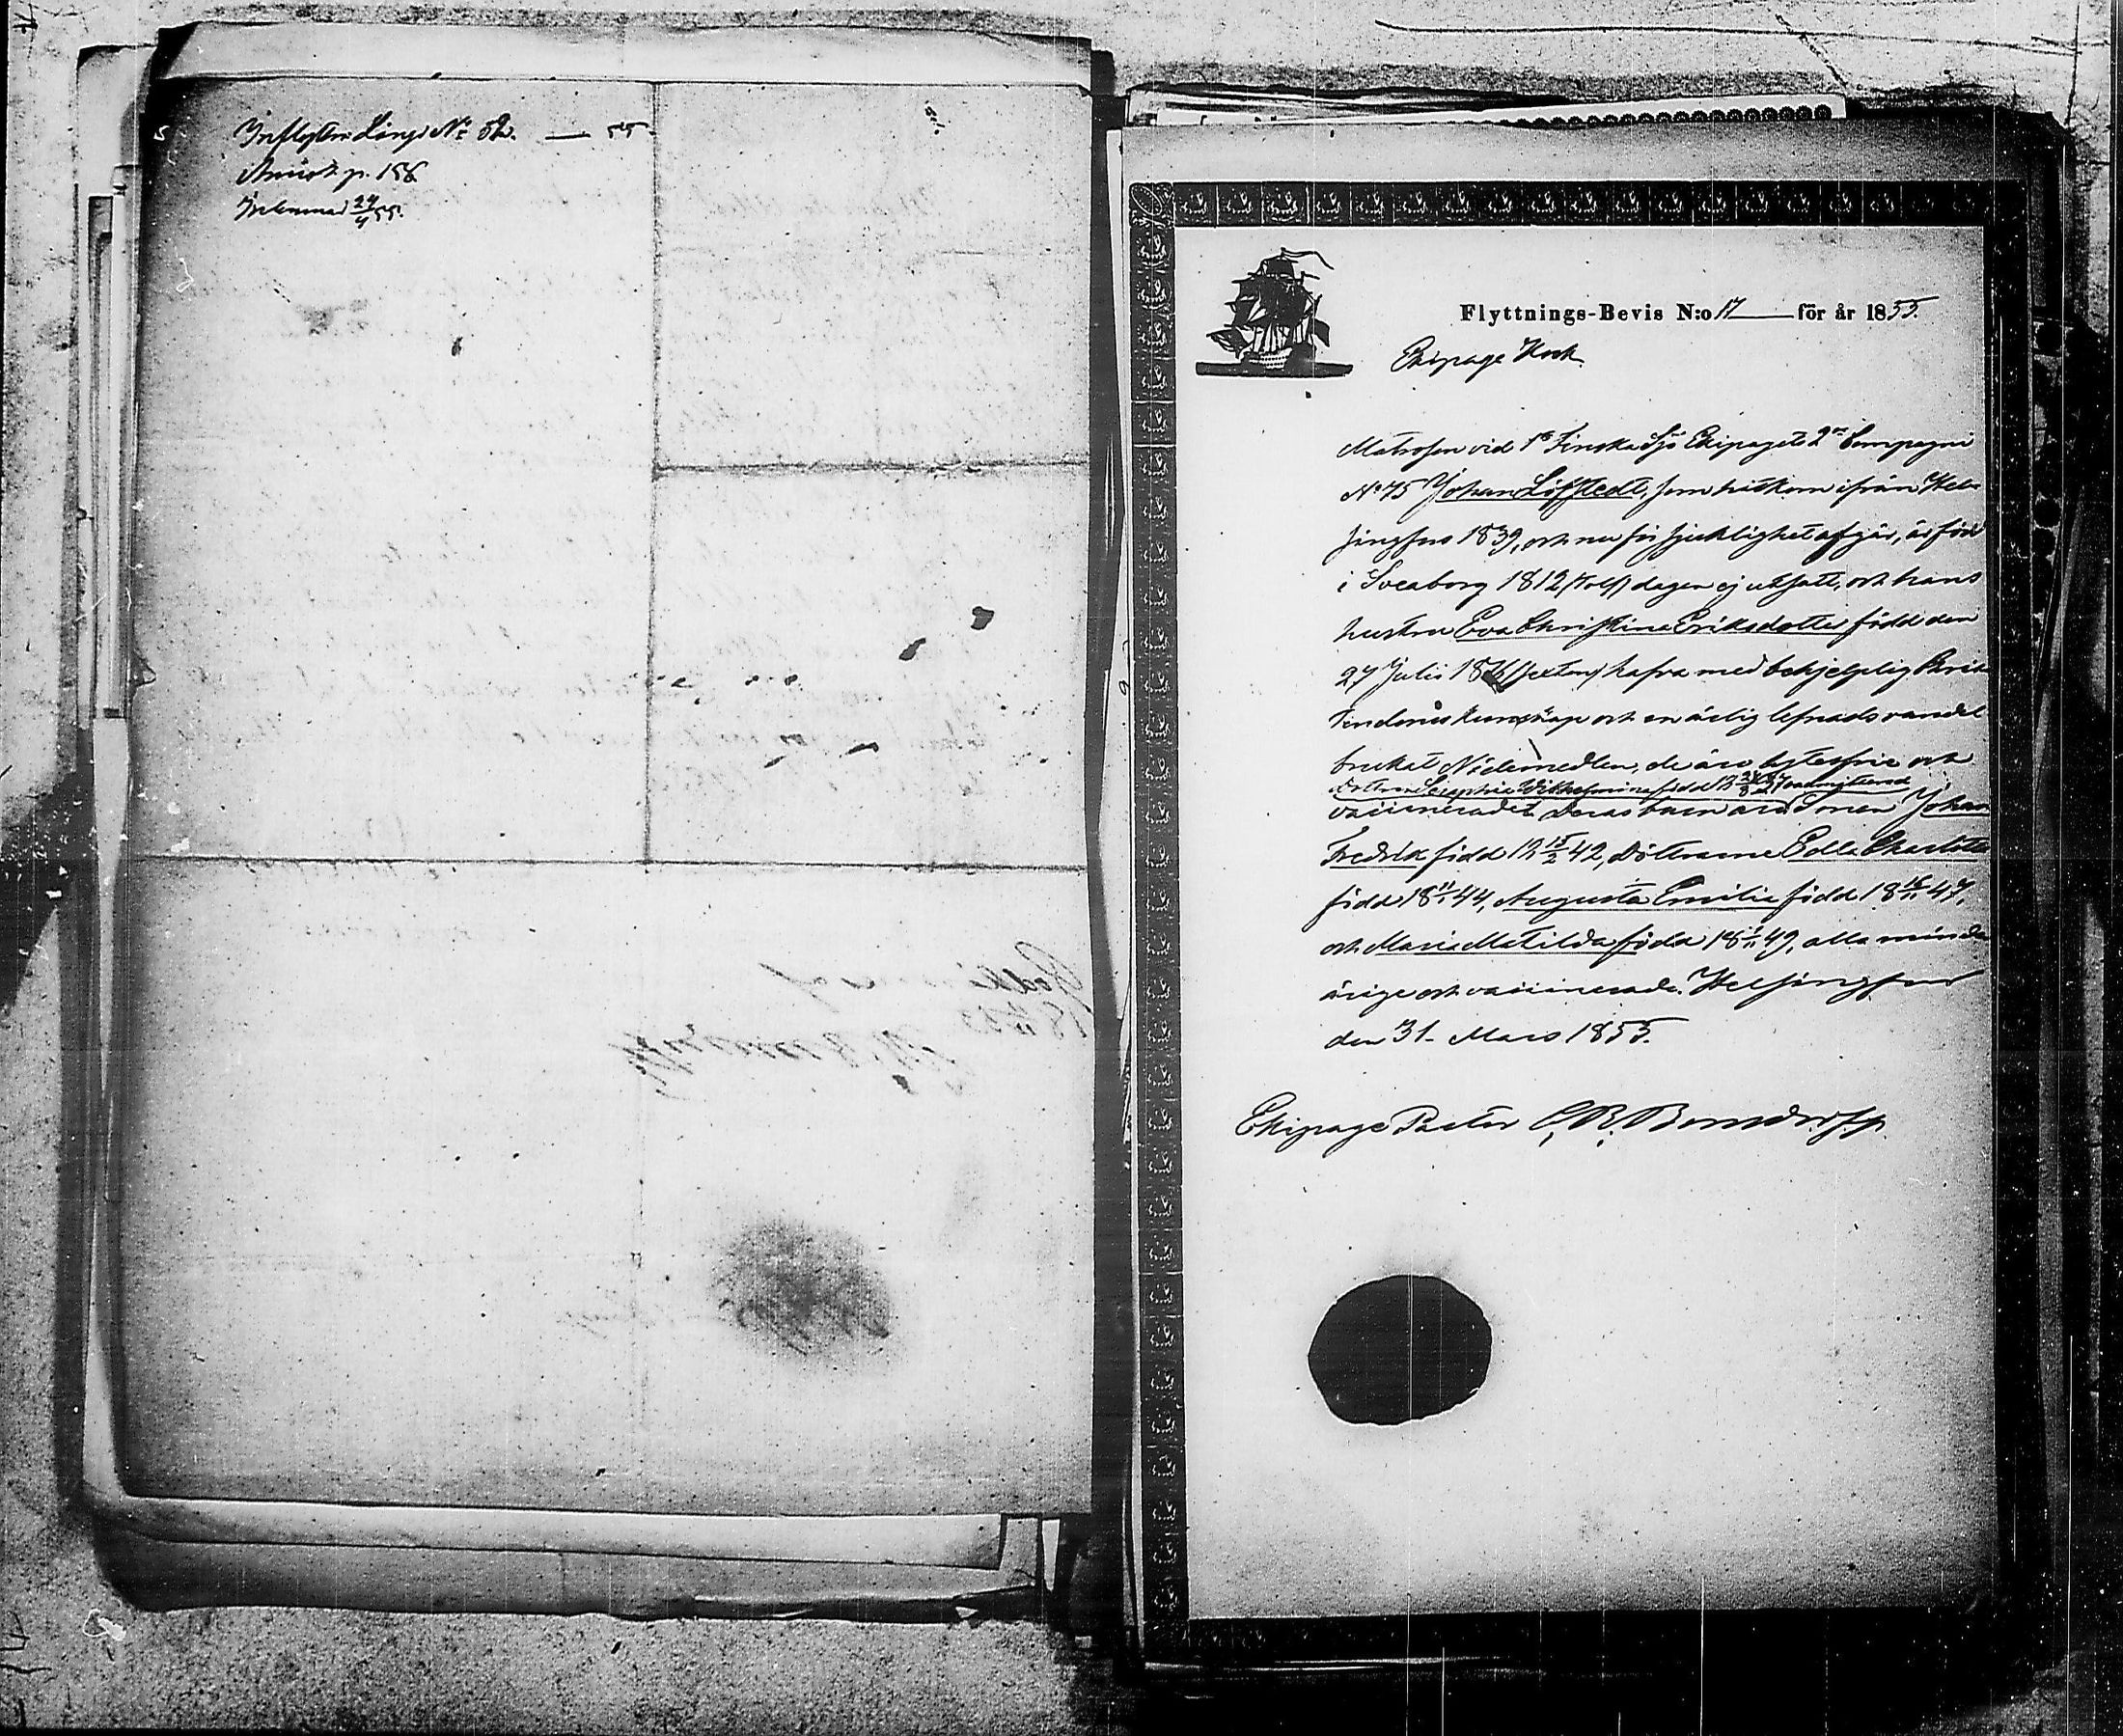 Inflyttn Längd No 52. — 55
Amins. p. 156
Inlemnad 24/4 55.
Flyttnings-Bevis N:o 17 för år 1855.
Ekipage Kock.
Matrosen vid 1a Finska Sjö Ekipagets 2a Compagni
No 75 Johan Löfstedt, som hitkom ifrån Hel-
singfors 1839, och nu för sjuklighet afgår, är född
i Sveaborg 1812 (tolf) dagen ej utsatt, och hans
hustru Eva Christina Eriksdotter född den
27 Julii 1816 (sexton) hafva med behjelplig Christ-
endoms kunskap och en ärlig lefnadsvandel
brukat Nådemedlen, de äro lytesfrie och
dottren Seraphia Wilhelmina född
vaccinerade. Deras barn äro: Sonen Johan
Fredrik född 18 15/2 42, döttrarne Edla Charlotta
född 18 11/1 44, Augusta Emilia född 18 16/11 47,
och Maria Matilda född 18 1/11 49, alla minder-
årige och vaccinerade. Helsingfors
den 31. Mars 1855.
Ekipage Pastor C. R. Bonsdorff